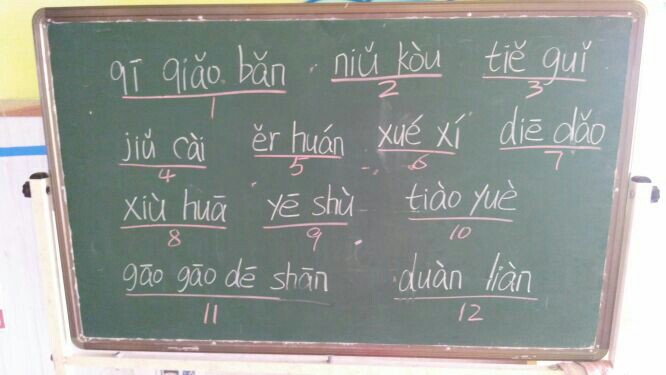 qī qiǎo bǎn niǔ kòu tiě guǐ
1 2 3
jiǔ cài ěr huán xué xí diē dǎo
4 5 6 7
xiù huā yē shù tiào yuè
8 9 10
gāo gāo dē shān duàn liàn
11 12